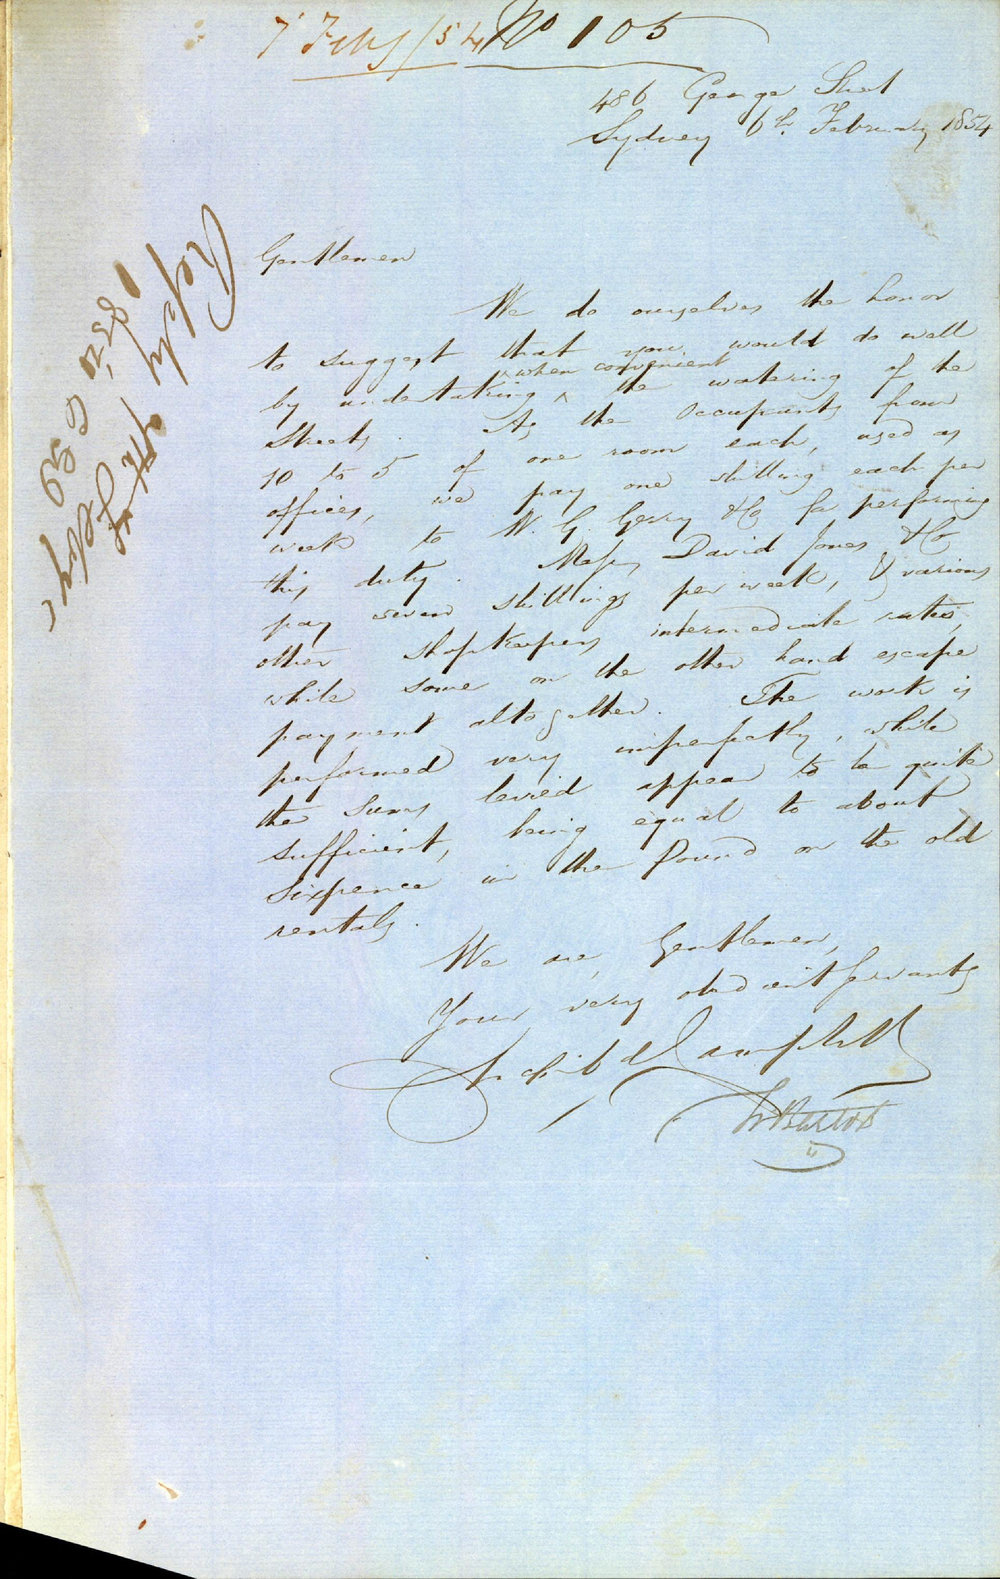 7 Feby /54 No 105
486 George Street
Sydney 6th February 1854
Gentlemen
We do ourselves the honor
to suggest that you would do well
by undertaking ^ when convenient the watering of the
Streets. As the Occupants from
10 to 5 of one room each, used as
offices, we pay one shilling each per
week to W. G. Gerry & Co for performing
this duty. Messrs David Jones & Co
pay seven shillings per week, & various
other shopkeepers intermediate rates,
while some on the other hand escape
payment altogether. The work is
performed very imperfectly, while
the sums levied appear to be quite
sufficient, being equal to about
Sixpence in the Pound on the old
rentals.
We are, Gentlemen,
Your very obedient Servants
Archibd Campbell
Reply